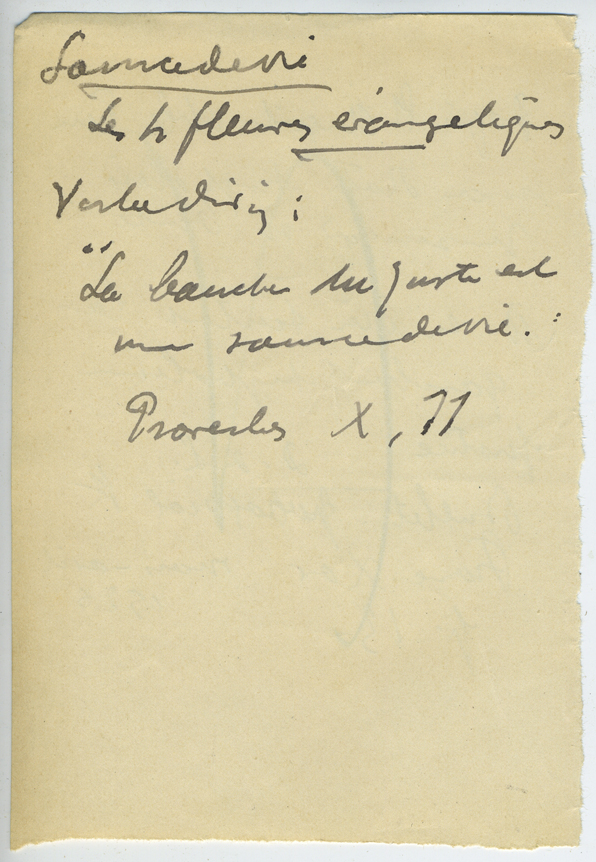 Source de vie
Les 4 fleuves évangeliques
Voir
"La bouche du juste est
une source de vie."
Proverbes X, 11